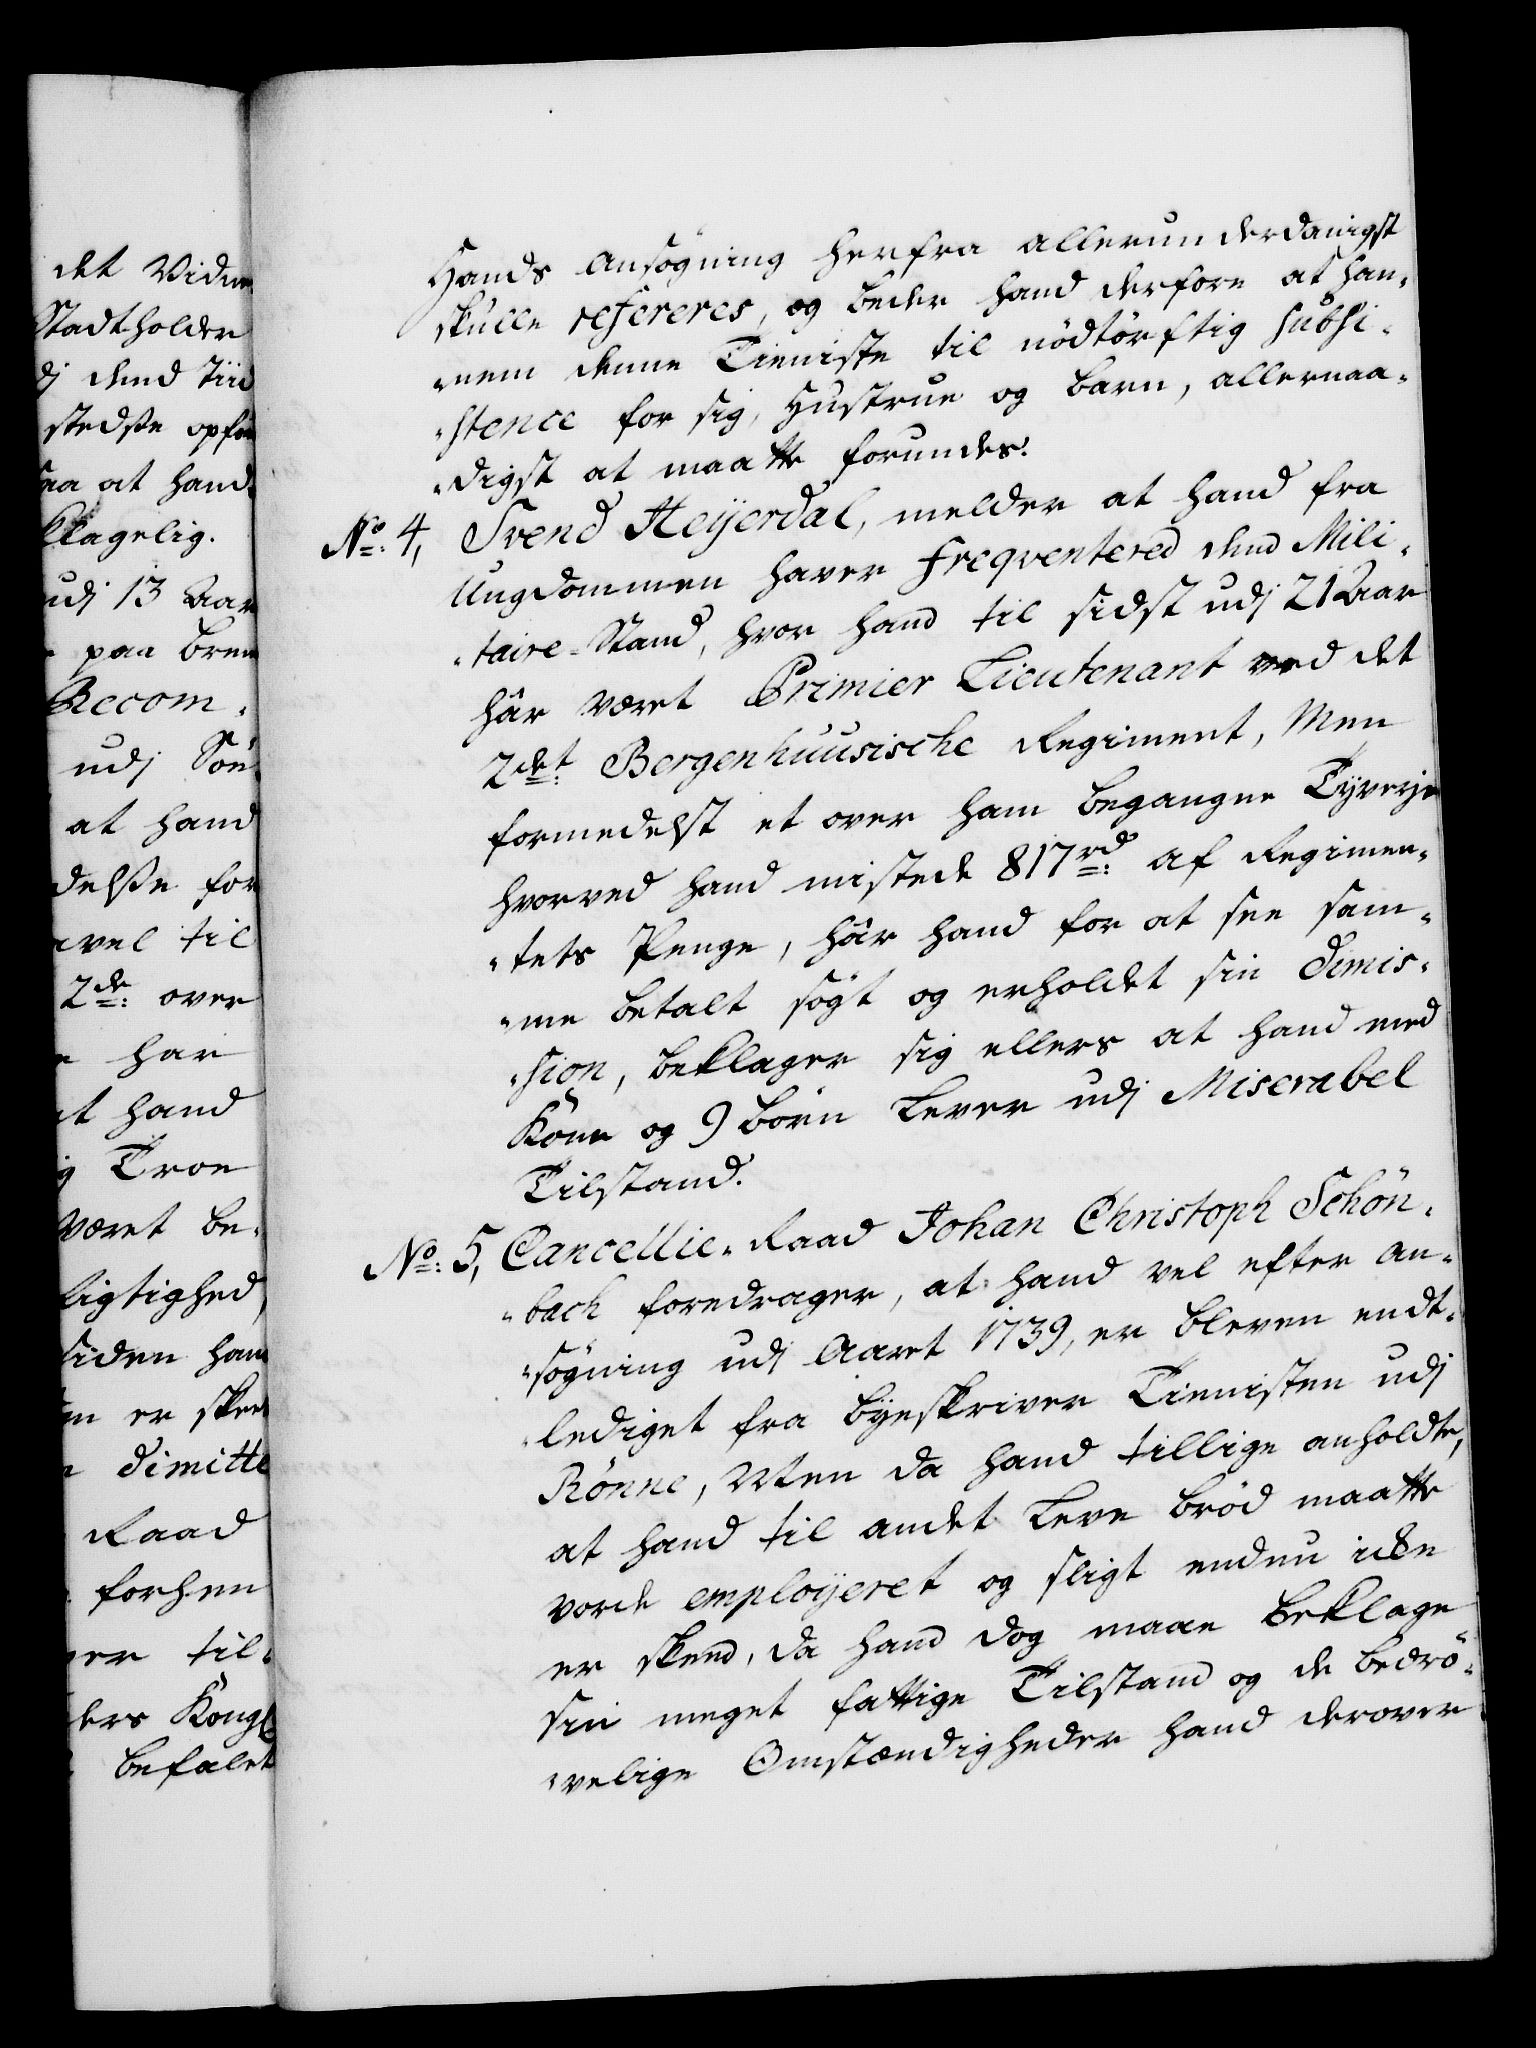 det Vidne
Stadtholder
dj dend Tiid
stedse opfør
saa at hand
klagelig.
udj 13 Aar
paa Brem
Recom-
udj Søe
at hand
delse for
vel til
2de: over
har
at hand
Troe
været be-
ligtighed,
siden ham
er skeed
dimitte
Raad
forhen
til-
ders Kongl
befalet
Hands Ansøgning herfra allerunderdanigst
skulle refereres, og beder hand derfore at han-
"nem denne Tieniste til nødtørftig subsi-
"stence for sig, Hustrue og Barn, allernaa-
"digst at maatte forundes.
No: 4, Svend Heijerdal, melder at hand fra
Ungdommen haver freqventered dend Mili-
"taire-Stand, hvor hand til sidst udj 21 Aar
hår været Primier Lieutenant ved det
2det: Bergenhuusische Regiment, Men
formedelst et over ham begangne Tyverje
hvorved hand mistede 817rd: af Regimen-
"tets Penge, hår hand for at see sam-
"me betalt søgt og erholdet sin Dimis-
"sion, beklager sig ellers at hand med
Kone og 9 børn Lever udj Miserabel
Tilstand.
No: 5, Cancellie-Raad Johan Christoph Schön-
"bach foredrager, at hand vel efter An-
"søgning udj Aaret 1739, er bleven endt-
"lediget fra Byeskriver Tienisten udj
Rønne, Men da hand tillige anholdte,
at hand til andet Leve brød maatte
vorde emploijeret og sligt endnu icke
er skeed, da hand dog maae beklage
sin meget fattige Tilstand og de bedrø-
"velige Omstændigheder hand derover